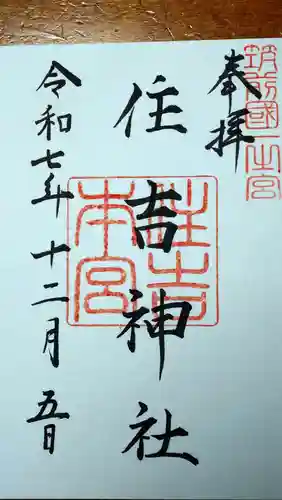 筑前國一之宮
奉拝
住吉神社
住吉本宮
令和七年十二月五日